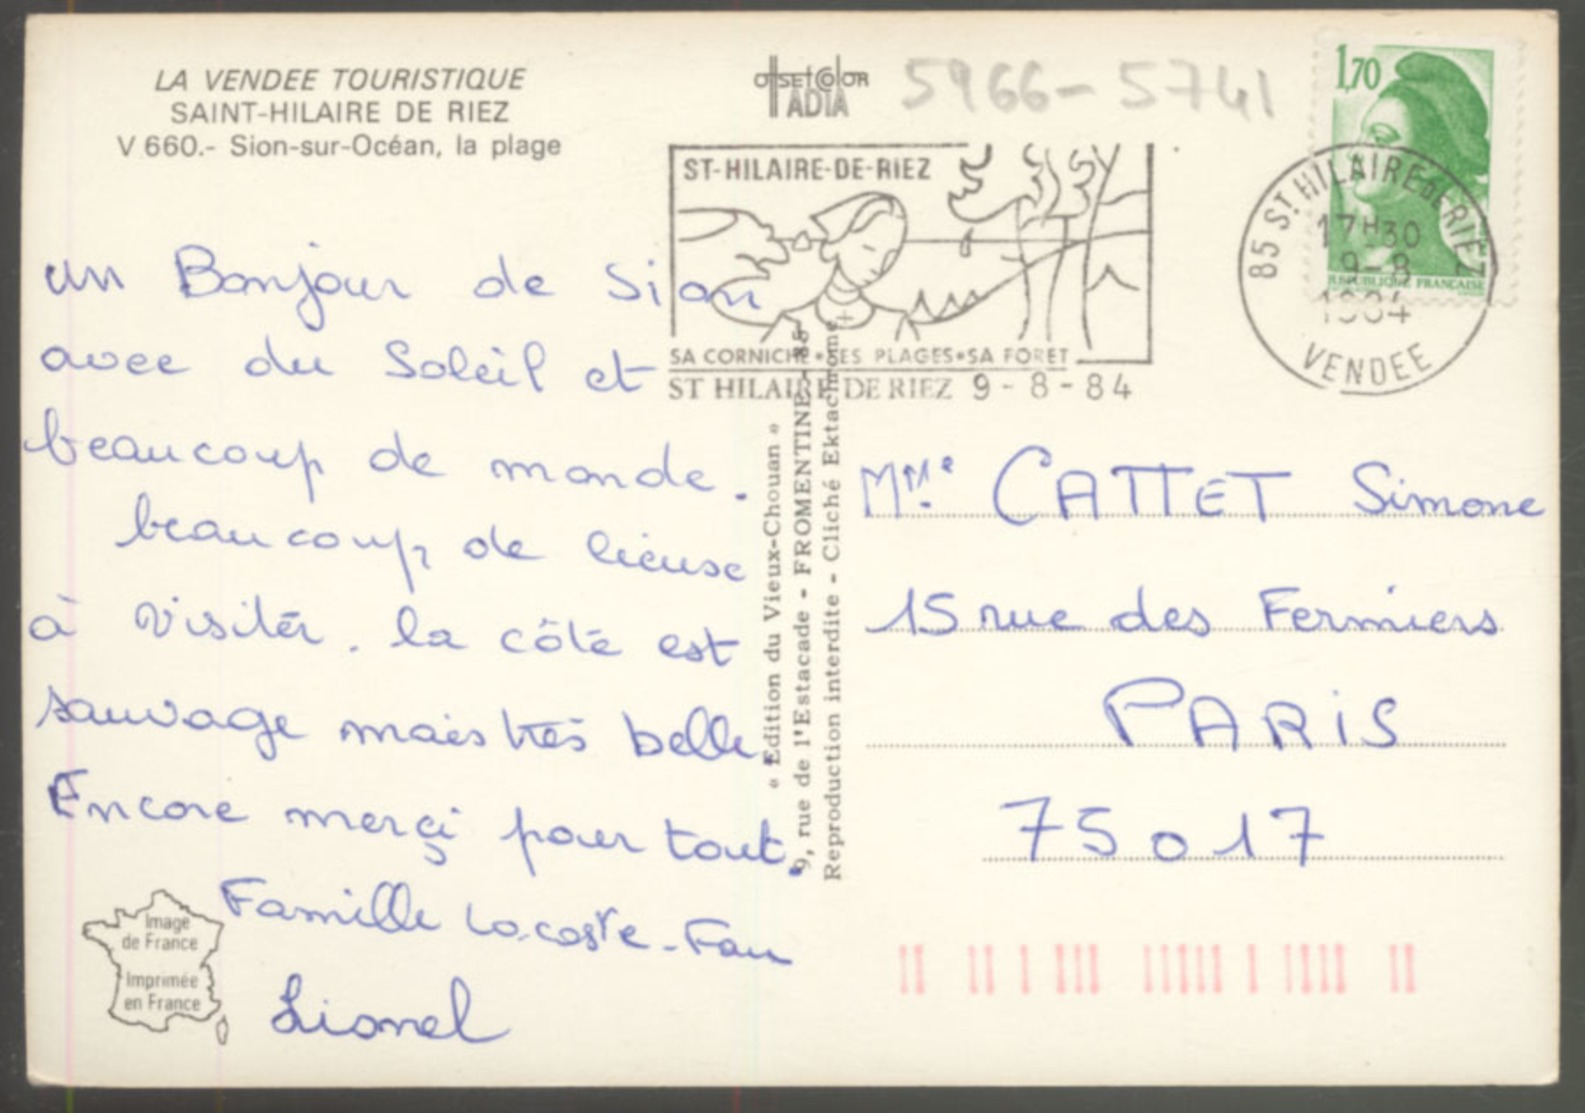 LA VENDEE TOURISTIQUE
SAINT-HILAIRE DE RIEZ
V 660.- Sion-sur-Océan, la plage
offset color
ADIA
5966-5741
1,70
REPUBLIQUE FRANÇAISE
85 ST HILAIRE DE RIEZ
17H30
9-8
1984
VENDEE
ST-HILAIRE-DE-RIEZ
SA CORNICHE*SES PLAGES*SA FORET
ST HILAIRE DE RIEZ 9-8-84
un Bonjour de Sion
avec du Soleil et
beaucoup de monde.
beaucoup de lieuse
à visiter. la côte est
sauvage mais très belle
Encore merçi pour tout.
Famille Lacoste-Fau
Lionel
« Edition du Vieux-Chouan »
9, rue de l'Estacade - FROMENTINE - 85
Reproduction interdite - Cliché Ektachrome
Mme CATTET Simone
15 rue des Fermiers
PARIS
75017
Image
de France
Imprimée
en France